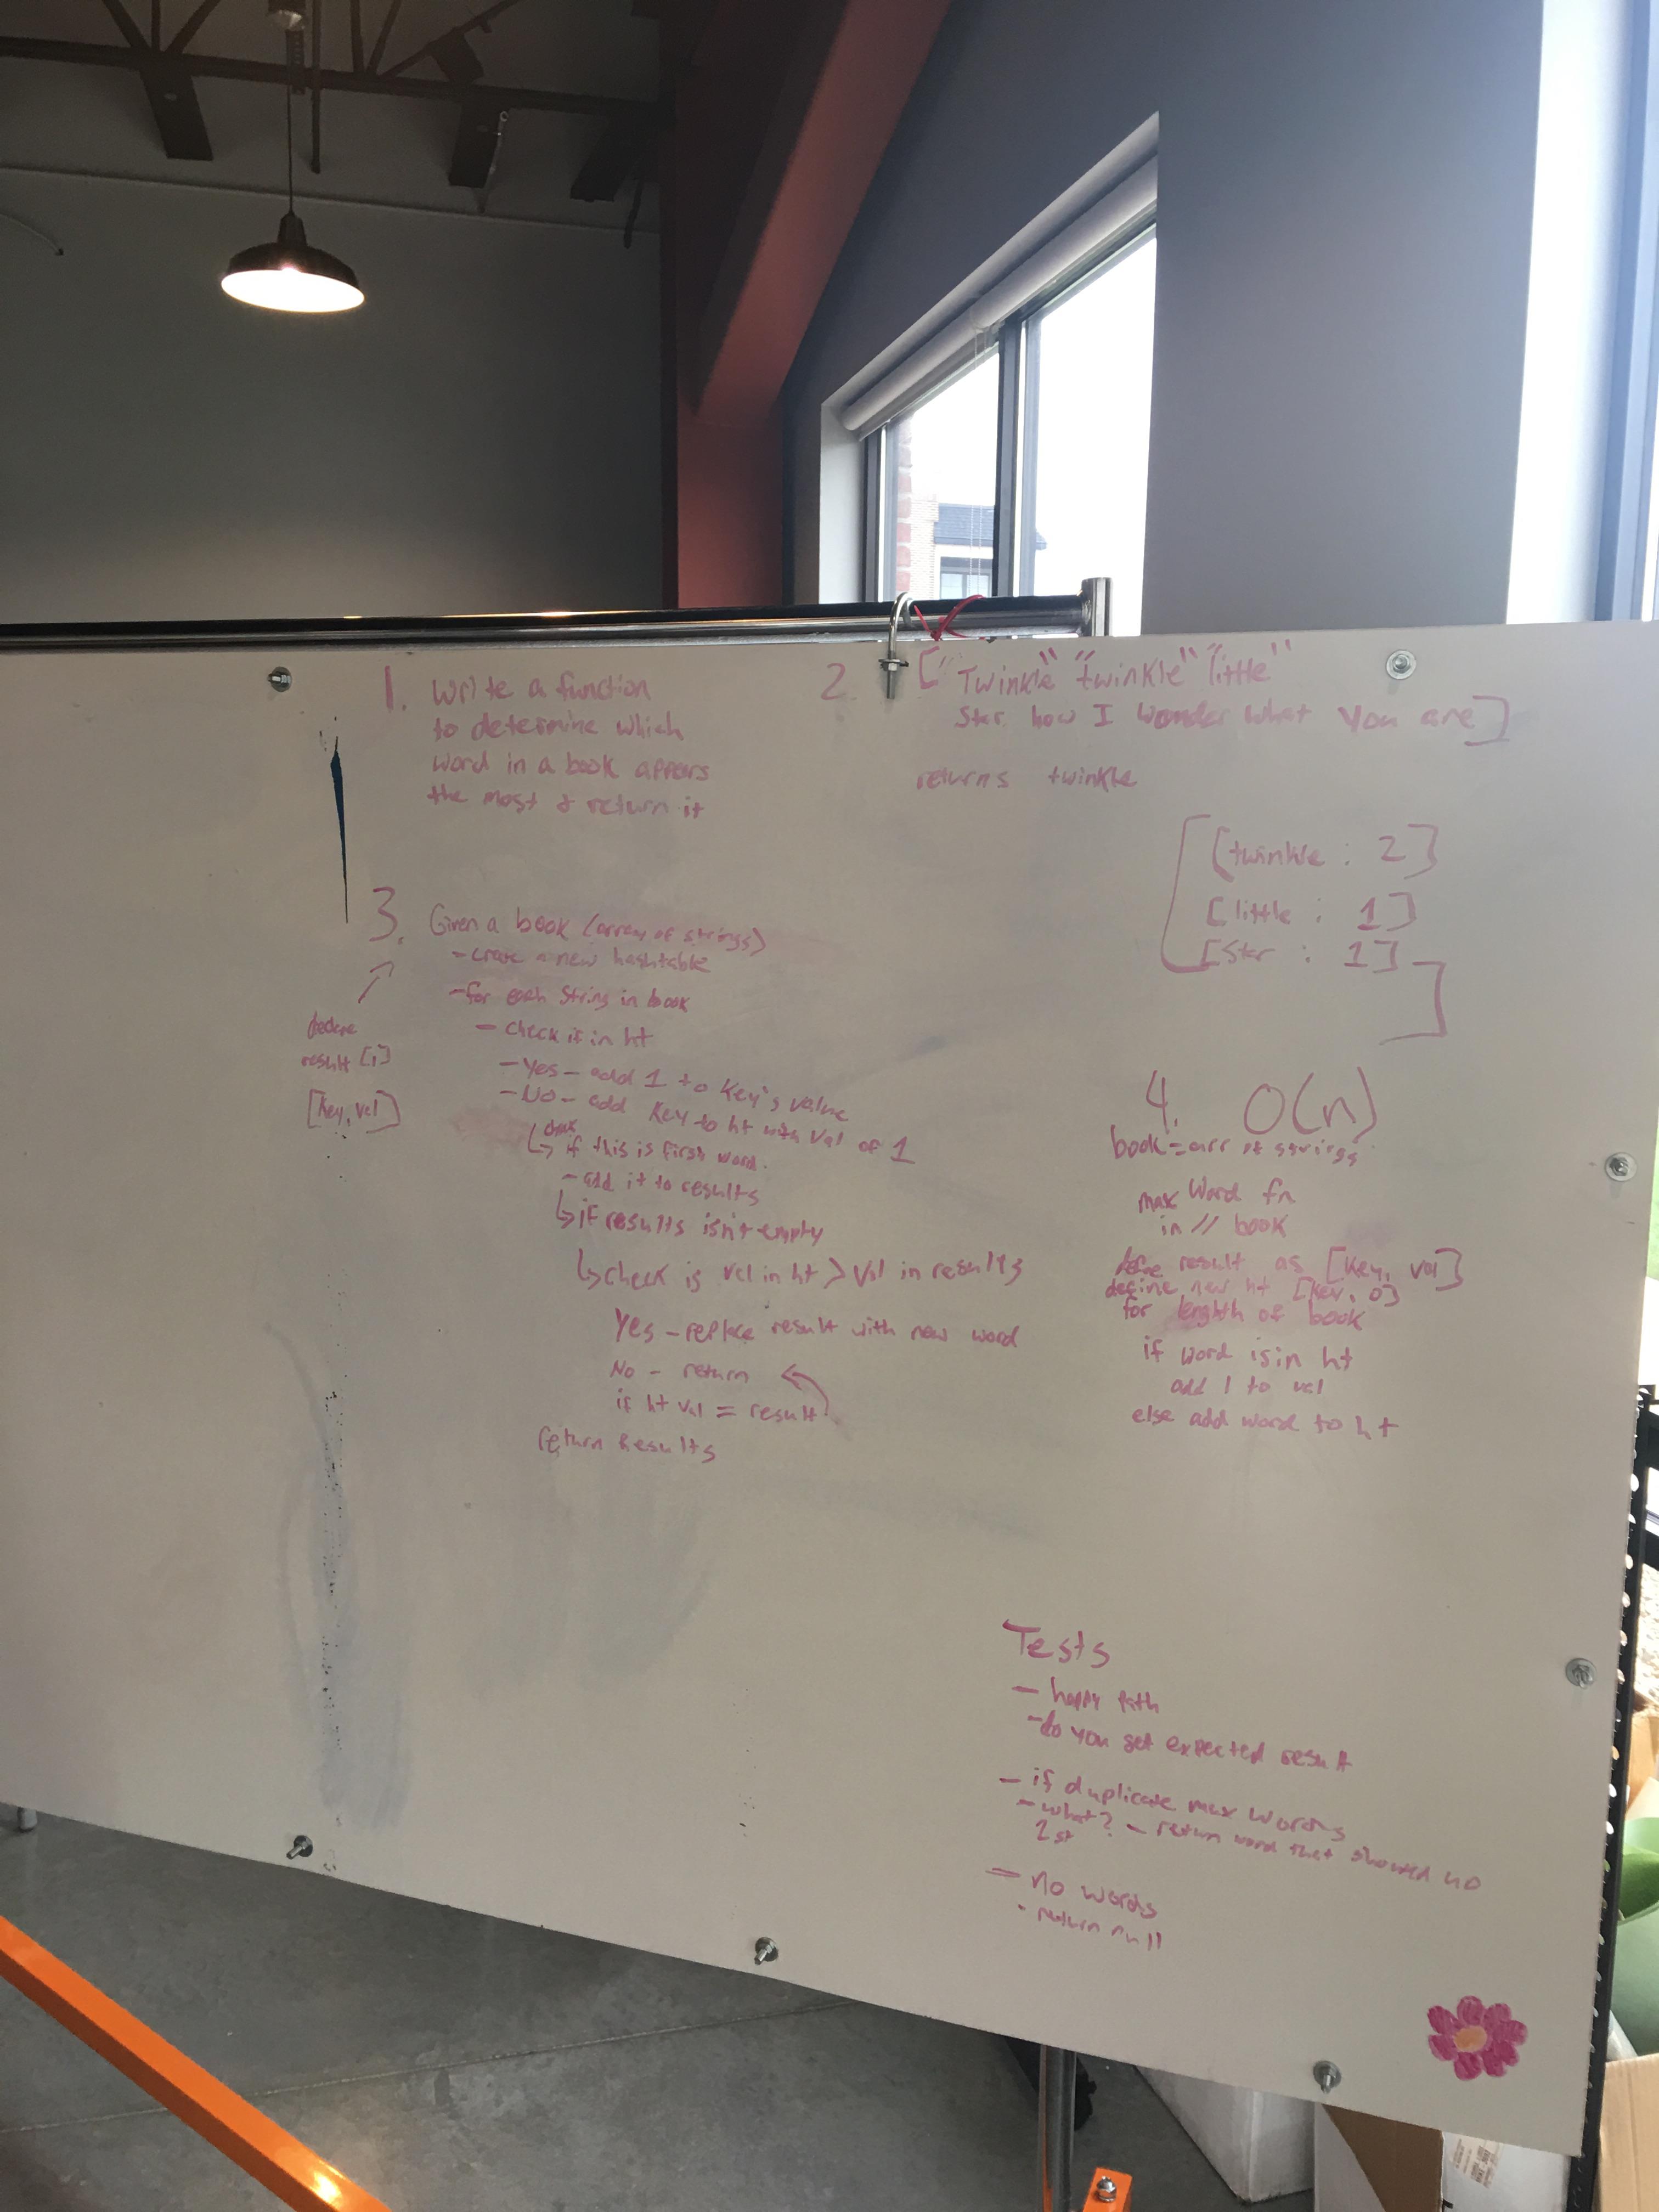 1. Write a function
to determine which
word in a book appears
the most & return it
2. ["Twinkle" "twinkle" "little"
Star how I wonder what you are]
returns twinkle
[[twinkle : 2]
[little : 1]
[Star : 1]
]
3. Given a book (array of strings)
- create a new hashtable
- for each string in book
- check if in ht
- Yes - add 1 to key's value
- No - add key to ht with val of 1
check
↳ if this is first word.
- add it to results
↳ if results isn't empty
↳ check is val in ht > val in results
Yes - replace result with new word
No - return
if ht val = result
return results
declare
result [,]
[key, val]
4. O(n)
book = arr of strings
max word fn
in // book
define result as [key, val]
define new ht [key, 0]
for length of book
if word is in ht
add 1 to val
else add word to ht
Tests
- happy path
- do you get expected result
- if duplicate max words
- what? - return word that showed up
1st
- no words
- return null